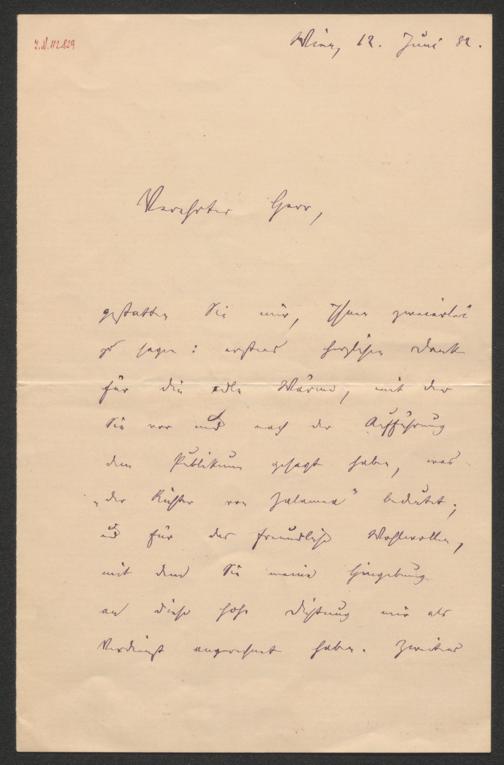 I.N. 112.829
Wien, 12. Juni 82.
Verehrter Herr,
gestatten Sie mir, Ihnen zweierlei
zu sagen: erstens herzlichen Dank
für die edle Wärme, mit der
Sie vor und nach der Aufführung
dem Publikum gesagt haben, was
„der Richter von Zalamea" bedeutet;
und für das freundliche Wohlwollen,
mit dem Sie meine Hingebung
an diese hohe Dichtung mir als
Verdienst angerechnet haben. Zweitens